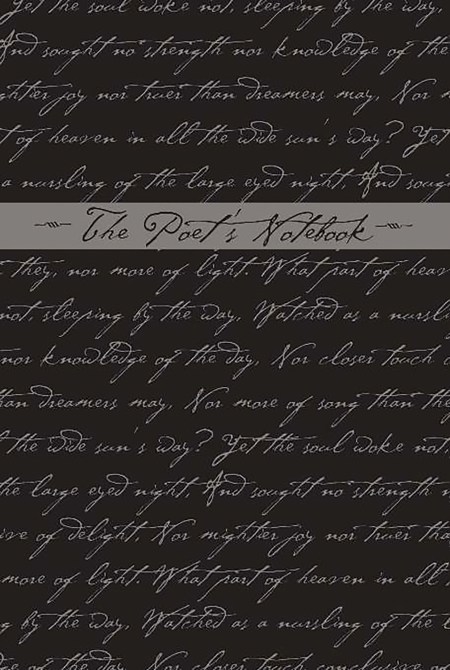 Yet the soul woke not, sleeping by the way,
And sought no strength nor knowledge of the
ghtier joy nor truer than dreamers may, Nor m
t of heaven in all the wide sun's way? Yet
a nursling of the large eyed night, And soug
The Poet's Notebook
they, nor more of light. What part of heav
not, sleeping by the way, Watched as a nursli
nor knowledge of the day, Nor closer touch c
han dreamers may, Nor more of song than the
the wide sun's way? Yet the soul woke not,
the large eyed night, And sought no strength n
ive of delight, Nor mightier joy nor truer tha
more of light. What part of heaven in all
g by the way, Watched as a nursling of the l
ge of the day, Nor closer touch conclusive of